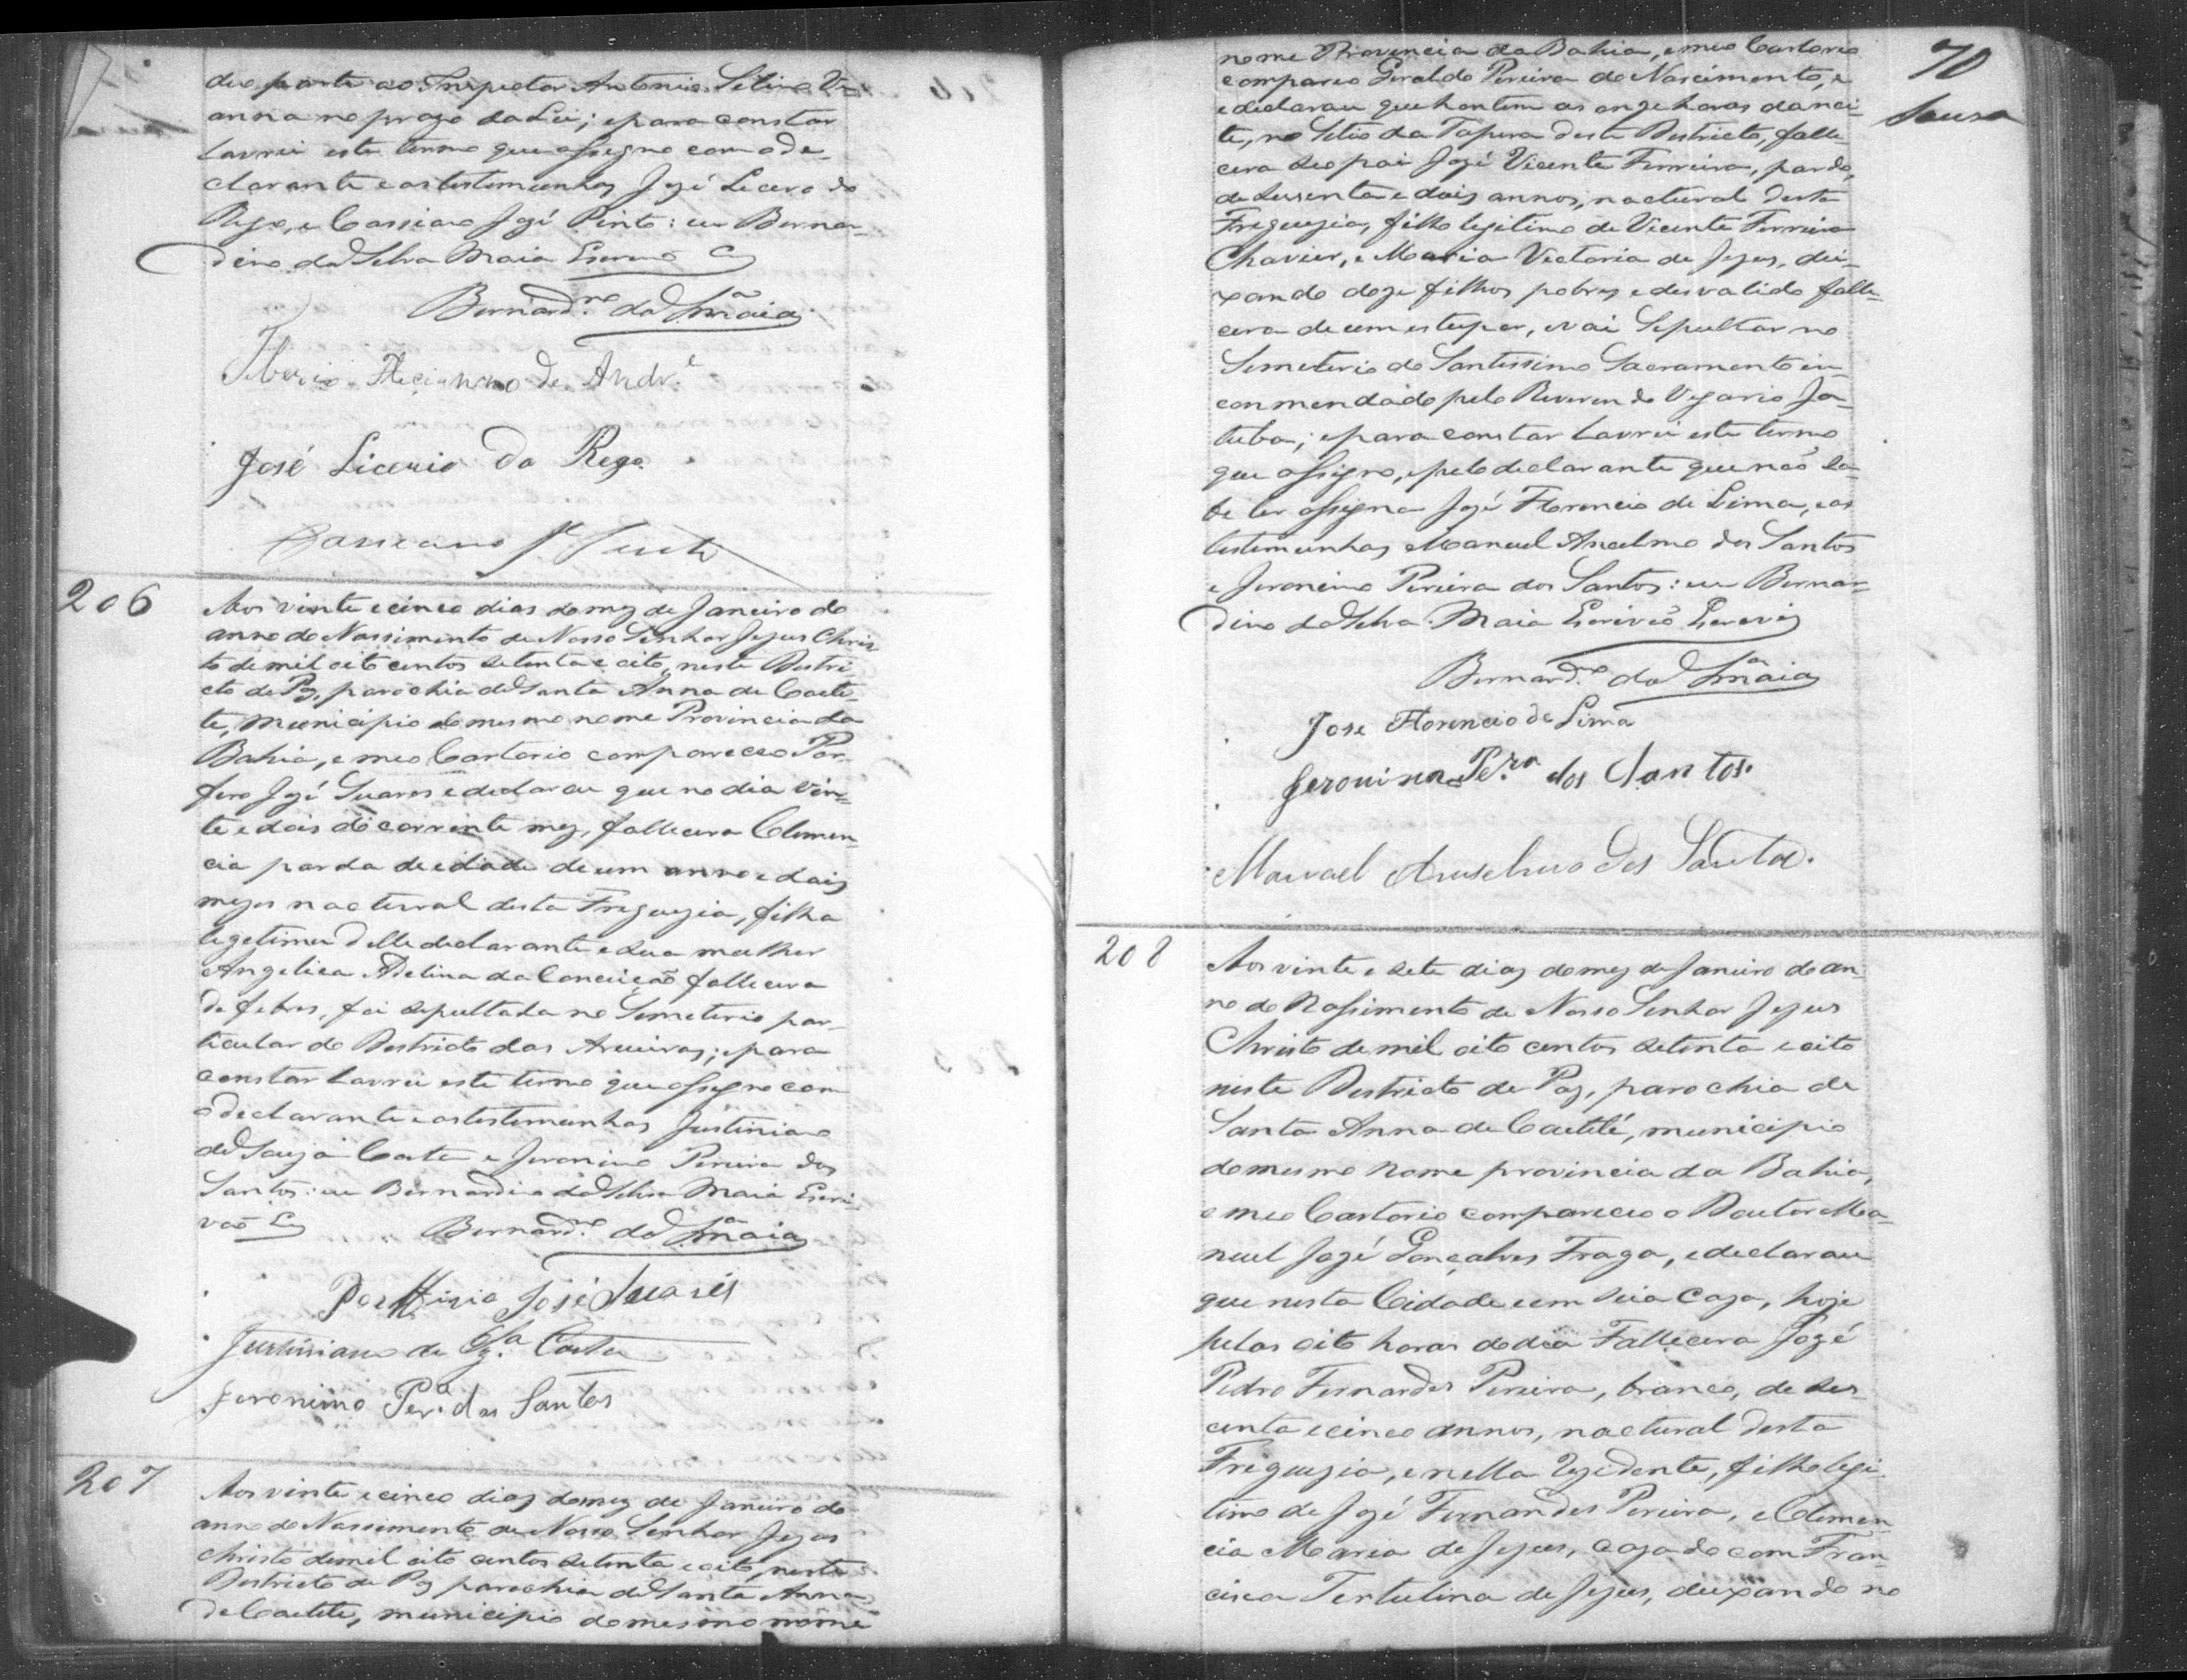 deo parte ao Inspector Antonio Silino Vi-
anna no prazo da Lei; e para constar
Lavrei este termo que assigno com o de-
clarante e as testemunhas José Licero do
Rego, e Cassiano José Pinto: eu Bernar-
dino da Silva Maia Escrivão
Bernard.no da S.a Maia
Feliciano de Andr.e
José Licerio do Rego
Cassiano J.e Pinto
206
Aos vinte e cinco dias do mez de Janeiro do
anno do Nassimento de Nosso Senhor Jezus Chris-
to de mil oito centos setenta e oito, neste Destri-
cto de Paz, parochia de Santa Anna de Caete-
te, Municipio do mesmo nome Provincia da
Bahia, e meo Cartorio compareceo Por-
firo José Suares e declarou que no dia vin-
te e dois do corrente mez, fallecera Clemen-
cia parda de edade de um anno e dois
mezes nactural desta Freguezia, filha
legetima delle declarante e sua mulher
Angelica Adelina da Conceição fallecera
de febres, foi sepultada no Semeterio par-
ticular do Destricto das Aroeiras; e para
constar Lavrei este termo que assigno com
o declarante e as testemunhas Justiniano
de Souza Costa e Jeronimo Pereira dos
Santos: eu Bernardino da Silva Maia Escri-
vão
Bernard.no da S.a Maia
Porfirio José Suares
Justiniano de Sz.a Costa
Jeronimo Per.a dos Santos
207
Aos vinte e cinco dias do mez de Janeiro do
anno do Nassimento de Nosso Senhor Jezus
Christo de mil oito centos setenta e oito, neste
Destricto de Paz parochia de Santa Anna
de Caetete, municipio do mesmo nome
70
Sousa
nome Provincia da Bahia, e meo Cartorio
compareo Geraldo Pereira do Nascimento, e
e declarou que hontem as onze horas da noi-
te, no Sitio da Tapera deste Destricto, falle-
cera seo pai José Vicente Ferreira, pardo,
de sessenta e dois annos, nactural desta
Freguezia, filho legitimo de Vicente Ferreira
Chavier, e Maria Victoria de Jezus, dei-
xando doze filhos pobres e desvalido falle-
cera de um estupor, e vai Sepultar no
Semeterio do Santissimo Sacramento en-
conmendado pelo Reverendo Vigario Ja-
tuba; e para constar Lavrei este termo
que assigno, e pelo declarante que não sa-
be ler assigna José Florencio de Lima, e as
testemunhas Manuel Ancelmo dos Santos
e Jeronimo Pereira dos Santos: eu Bernar-
dino da Silva Maia Escrivão Escrevi
Bernard.no da S.a Maia
Jose Florencio de Lima
Jeronimo Per.ra dos Santos
Manoel Anselmo dos Santos
208
Aos vinte e sete dias do mez de Janeiro do an-
no do Nassimento de Nosso Senhor Jezus
Christo de mil oito centos setenta e oito
neste Destricto de Paz, parochia de
Santa Anna de Caetité, municipio
do mesmo nome provincia da Bahia,
e meo Cartorio compareceo o Doutor Ma-
nuel José Gonçalves Fraga, e declarou
que nesta Cidade e em sua Caza, hoje
pelas oito horas do dia Fallecera José
Pedro Fernandes Pereira, branco, de ses-
centa e cinco annos, nactural desta
Freguezia, e nella Rezidente, filho legi-
timo de José Fernandes Pereira, e Clemen-
cia Maria de Jezus, cazado com Fran-
cisca Tertulina de Jezus, deixando no